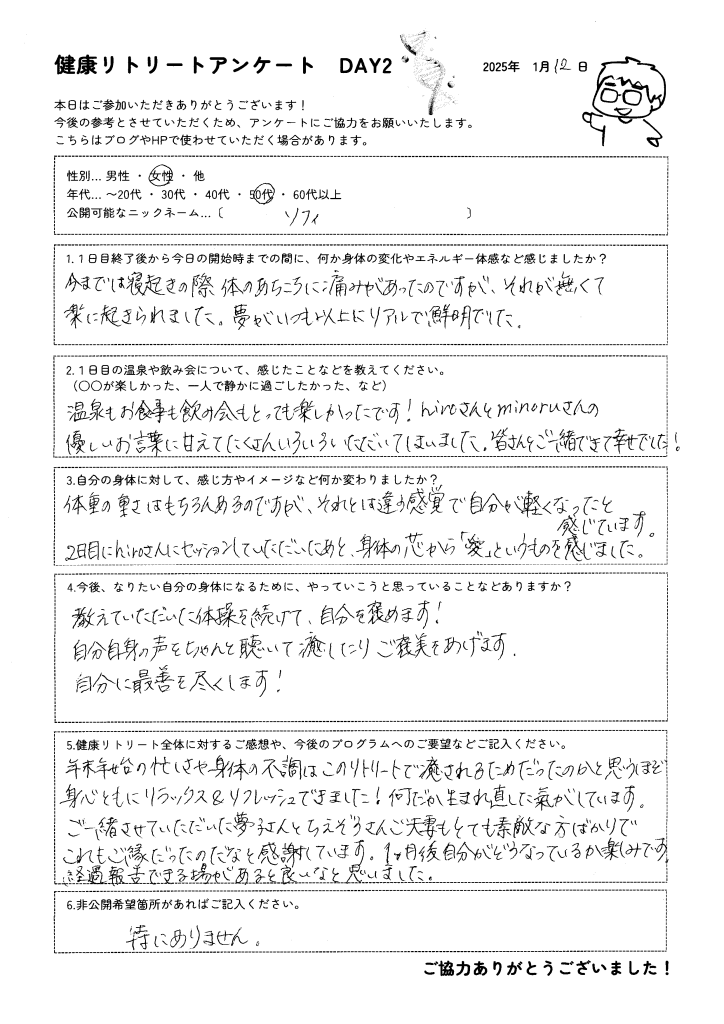 健康リトリートアンケート　DAY2
2025年　1月12日
本日はご参加いただきありがとうございます！
今後の参考とさせていただくため、アンケートにご協力をお願いいたします。
こちらはブログやHPで使わせていただく場合があります。
性別… 男性 ・ 女性 ・ 他
年代… ～20代 ・ 30代 ・ 40代 ・ 50代 ・ 60代以上
公開可能なニックネーム…（　ソフィ　）
1.１日目終了後から今日の開始時までの間に、何か身体の変化やエネルギー体感など感じましたか？
今までは寝起きの際 体のあちこちに痛みがあったのですが、それが無くて
楽に起きられました。夢がいつも以上にリアルで鮮明でした。
2.１日目の温泉や飲み会について、感じたことなどを教えてください。
（〇〇が楽しかった、一人で静かに過ごしたかった、など）
温泉もお食事も飲み会もとっても楽しかったです！hiroさんとminoruさんの
優しいお言葉に甘えてたくさんいろいろいただいてしまいました。皆さんとご一緒できて幸せでした！
3.自分の身体に対して、感じ方やイメージなど何か変わりましたか？
体重の重さはもちろんあるのですが、それとは違う感覚で自分が軽くなったと
感じています。
2日目にhiroさんにセッションしていただいたあと、身体の芯から「愛」というものを感じました。
4.今後、なりたい自分の身体になるために、やっていこうと思っていることなどありますか？
教えていただいた体操を続けて、自分を褒めます！
自分自身の声をちゃんと聴いて癒したりご褒美をあげます．
自分に最善を尽くします！
5.健康リトリート全体に対するご感想や、今後のプログラムへのご要望などご記入ください。
年末年始の忙しさや身体の不調はこのリトリートで癒されるためだったのかと思うほど
身心ともにリラックス＆リフレッシュできました！何だか生まれ直した氣がしています。
ご一緒させていただいた夢子さんとちえぞうさんご夫妻もとても素敵な方ばかりで
これもご縁だったのだなと感謝しています。1ヶ月後自分がどうなっているか楽しみです。
経過報告できる場があると良いなと思いました。
6.非公開希望箇所があればご記入ください。
特にありません。
ご協力ありがとうございました！